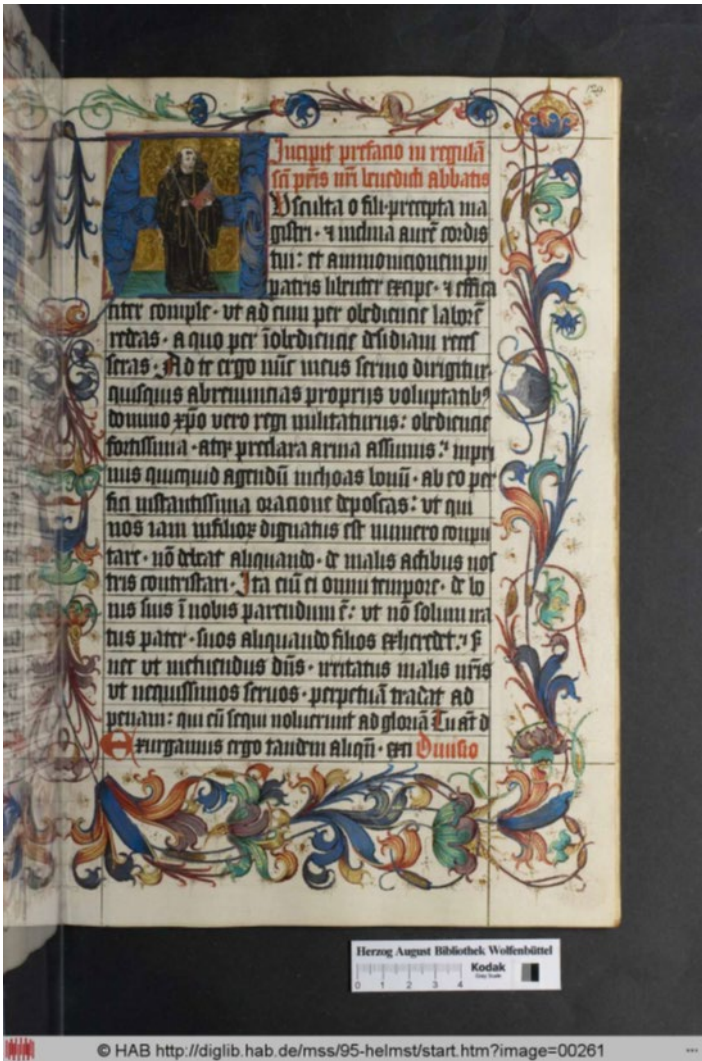 Incipit prefacio in regulā
scī pr̄is nr̄i benedicti abbatis
Usculta o fili precepta ma
gistri · ⁊ inclina aurē cordis
tui: et ammonicionem pii
patris libenter excipe · ⁊ effica
citer comple · ut ad eum per obediencie laborē
redeas · a quo per īobediencie desidiam reces
seras · Ad te ergo nūc meus sermo dirigitur
quisquis abrenuncias proprijs voluptatibꝰ
domino xp̄o vero regi militaturus: obediencie
fortissima · atqꝫ preclara arma assumis: inpri
mis quicquid agendū inchoas bonū · ab eo per
fici instantissima oracione deposcas: ut qui
nos iam in filioꝝ dignatus est numero conpu
tare · nō debeat aliquando · de malis actibus nos
tris contristari · Ita eni ei omni tempore · de bo
nis suis ī nobis parendum ē: ut nō solum ira
tus pater · suos aliquando filios exheredet: s
nec ut metuendus dn̄s · irritatus malis nr̄is
ut nequissimos servos · perpetuā tradat ad
penam: qui eū sequi noluerint ad gloriā Tu aūt d
Exurgamus ergo tandem aliqn̄ · exci Divisio
Herzog August Bibliothek Wolfenbüttel
0 1 2 3 4 Kodak
Gray Scale
© HAB http://diglib.hab.de/mss/95-helmst/start.htm?image=00261